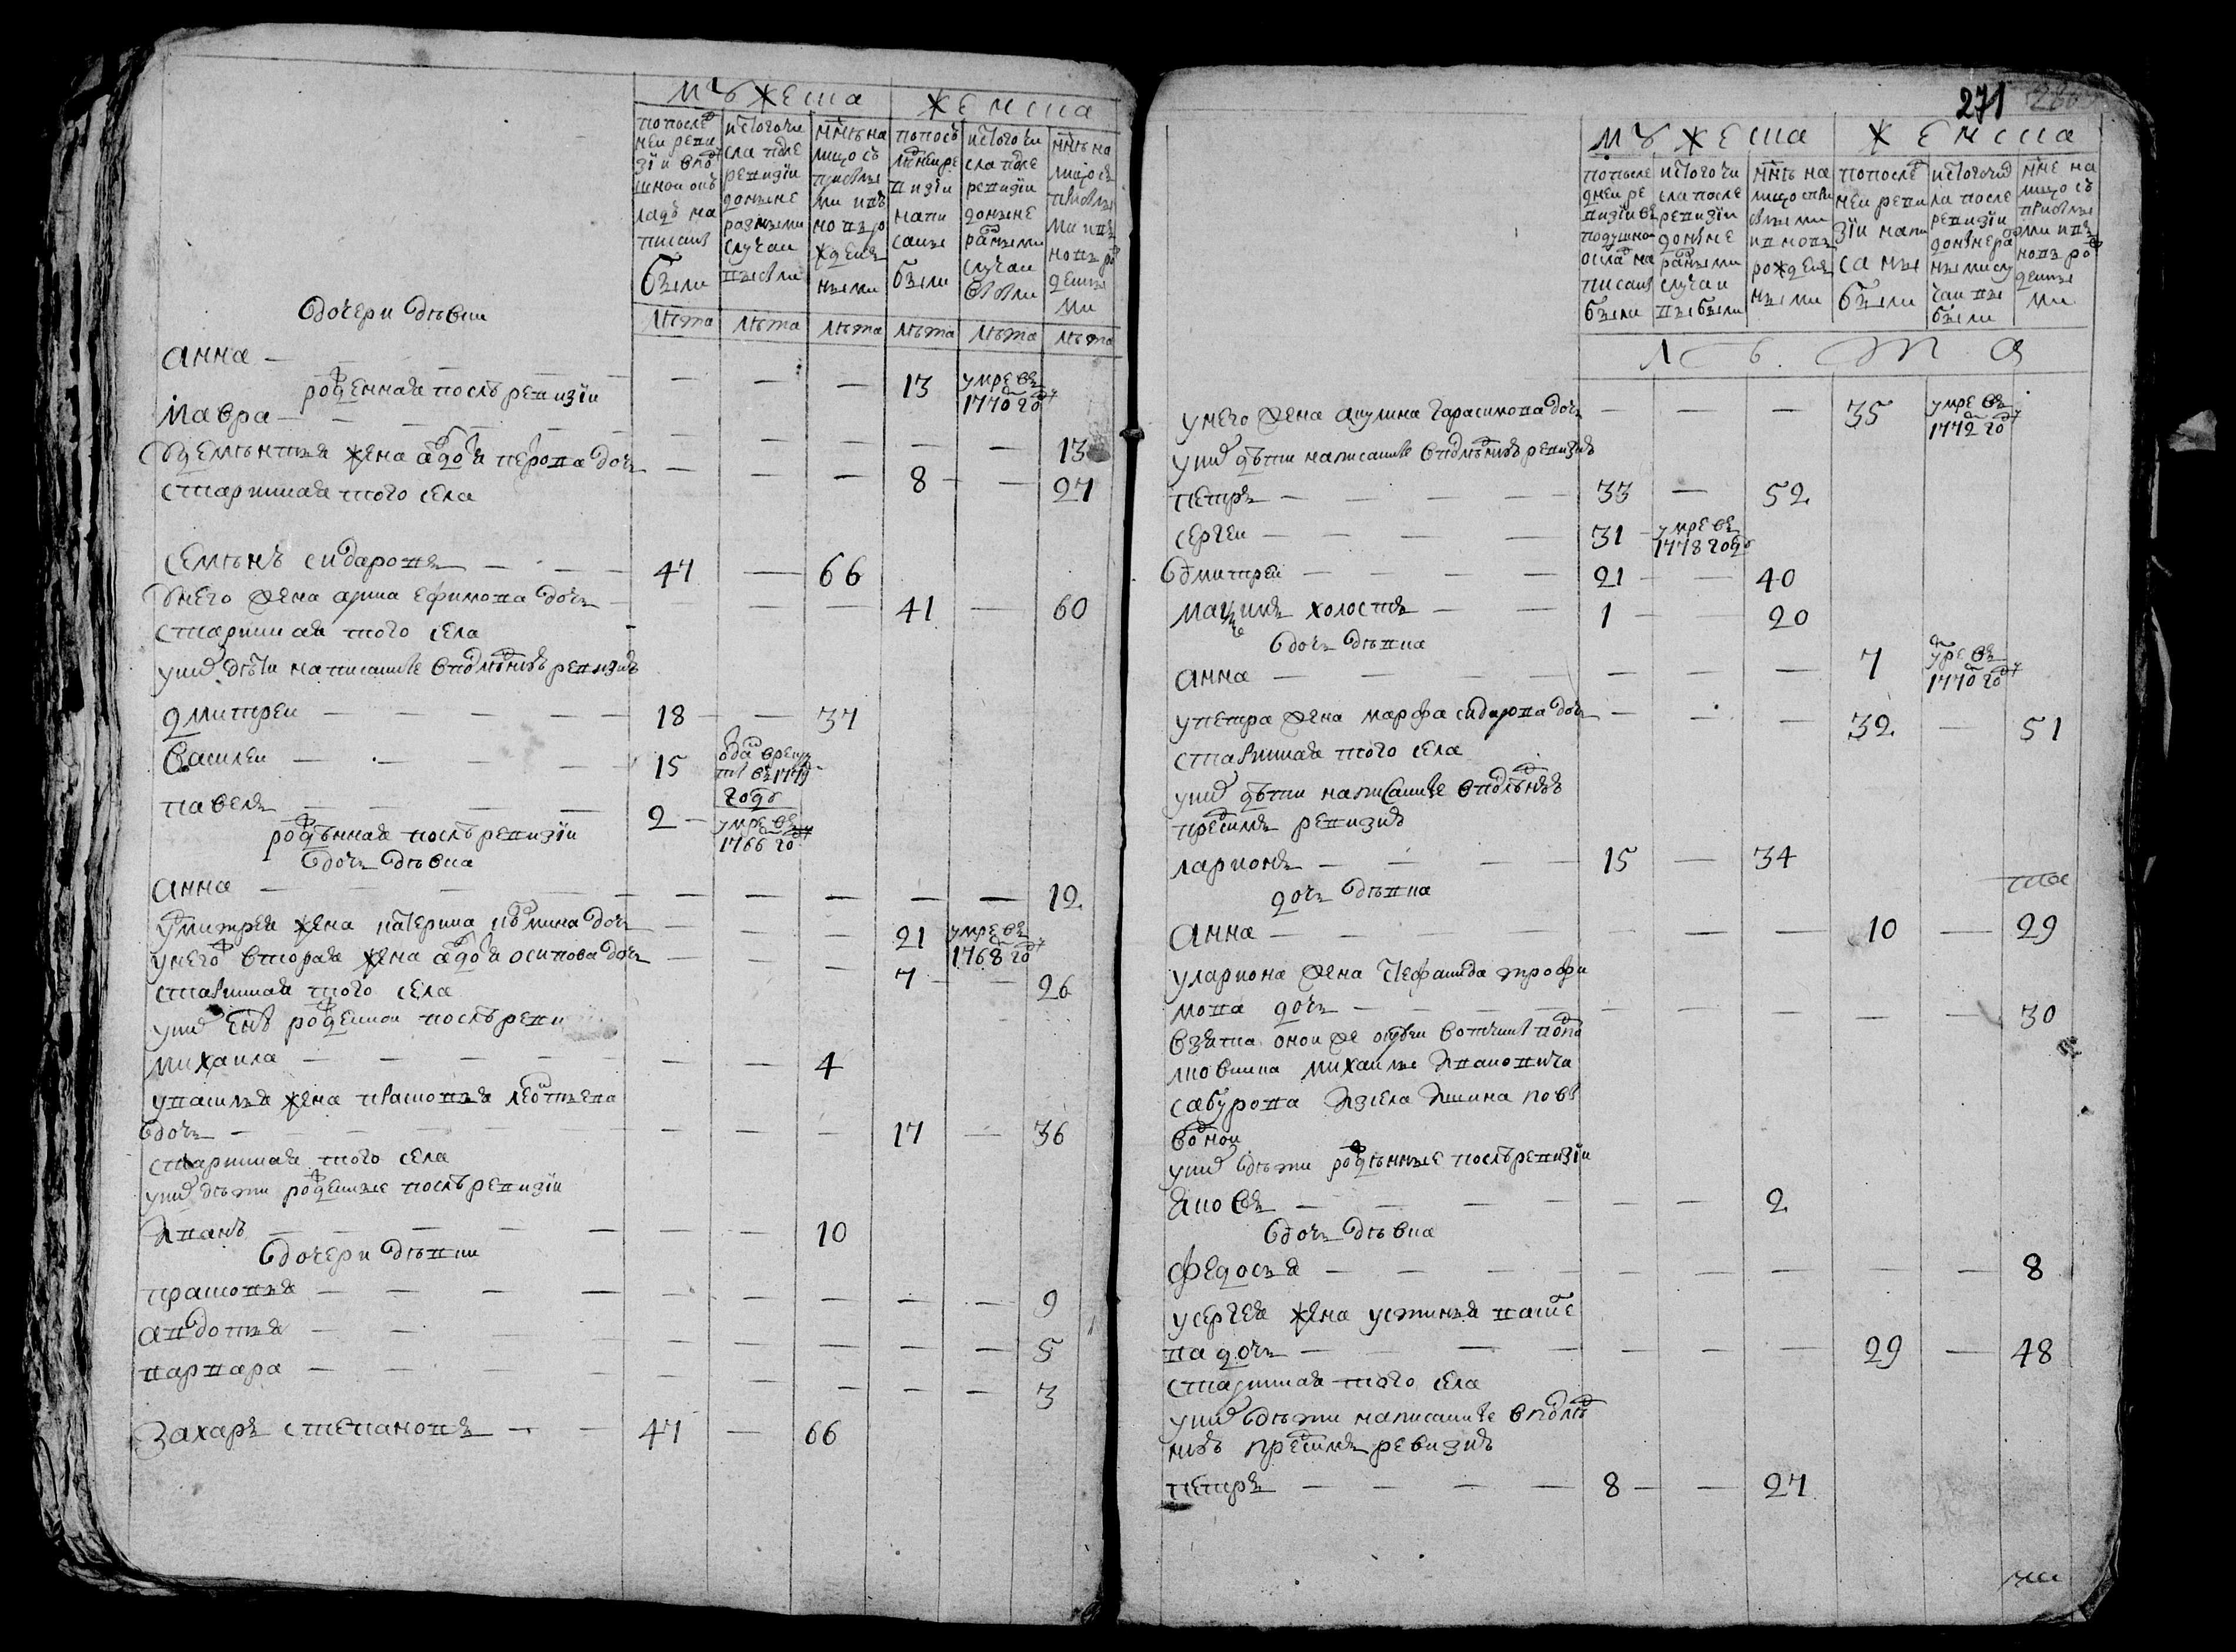 мужеска
женска
по после
ней реви
зіи в по
душной ок
ладъ на
писано
были
ис того чи
сла после
ревизіи
до ныне
разными
случаи
выбыли
нне на
лицо съ
прибылы
ми и въ
новь ро
жден
ными
по посл
дней ре
визіи
напи
саны
были
ис того чи
сла после
ревизіи
до ныне
разными
случаи
выбыли
нне на
лицо съ
прибылы
ми и въ
новь ро
жденны
ми
лѣта лѣта лѣта лѣта лѣта лѣта
дочери дѣвки
анна — — — — 13 умре въ 1770 году
рожденная послѣ ревизіи
мавра — — — — — — 13
у дементья жена авдотья перова дочь — — — 8 — 27
старинная того села
семенъ сидаровъ — 47 — 66
у него жена арина ефимова дочь — — — 41 — 60
старинная того села
у них дѣти написанные в подушной ревизиѣ
дмитреи — 18 — 37
василеи — 15 отдан в рекруты въ 1779 году
павелъ — 2 — умре въ 1766 году
рожденная послѣ ревизіи
дочь дѣвка
анна — — — — — — 12
у митрея жена катерина кузмина дочь — — — 21 умре въ 1768 году
у него вторая жена авдотья осипова дочь — — — 7 — 26
старинная того села
у них сынъ рожденной послѣ реви
михаила — — — 4
у василья жена прасковья леонтьева
дочь — — — 17 — 36
старинная того села
у них дѣти рожденные послѣ ревизіи
иванъ — — — 10
дочери дѣвки
прасковья — — — — — — 9
авдотья — — — — — — 5
варвара — — — — — — 3
захаръ степановъ — 47 — 66
271
мужеска
женска
по после
дней ре
визіи въ
подушной
оклад на
писано
были
ис того чи
сла после
ревизіи
до ныне
разными
случаи
выбыли
нне на
лицо с при
былыми
и в новь
рожден
ными
по после
ней реви
зіи напи
саны
были
ис того чис
ла после
ревизіи
до ныне ра
зными слу
чаи вы
были
нне на
лицо съ
прибылы
ми и въ
новь ро
жденны
ми
лѣта
у него жена акулина гарасимова дочь — — — 35 умре въ 1772 году
у них дѣти написанные в подушной ревизиѣ
петръ — 33 — 52
сергеи — 31 — умре въ 1778 году
дмитреи — 21 — 40
максимъ холостъ — 1 — 20
дочь дѣвка
анна — — — — 7 умре въ 1770 году
у петра жена марфа сидарова дочь — — — 32 — 51
старинная того села
у них дѣти написанные в подушной
прежней ревизиѣ
ларионъ — 15 — 34
дочь дѣвка
анна — — — — 10 — 29
у лариона жена стефанида трофи
мова дочь — — — — — — 30
взята оной же округи вотчины полко
вника михаилы ивановича
сабурова из села ишина по вы
водной
у них дѣти рожденные послѣ ревизіи
яковъ — — — 2
дочь дѣвка
федосья — — — — — — 8
у сергея жена устинья васил
ва дочь — — — 29 — 48
старинная того села
у них дѣти написанные в подуш
ной прежней ревизиѣ
петръ — 8 — 27